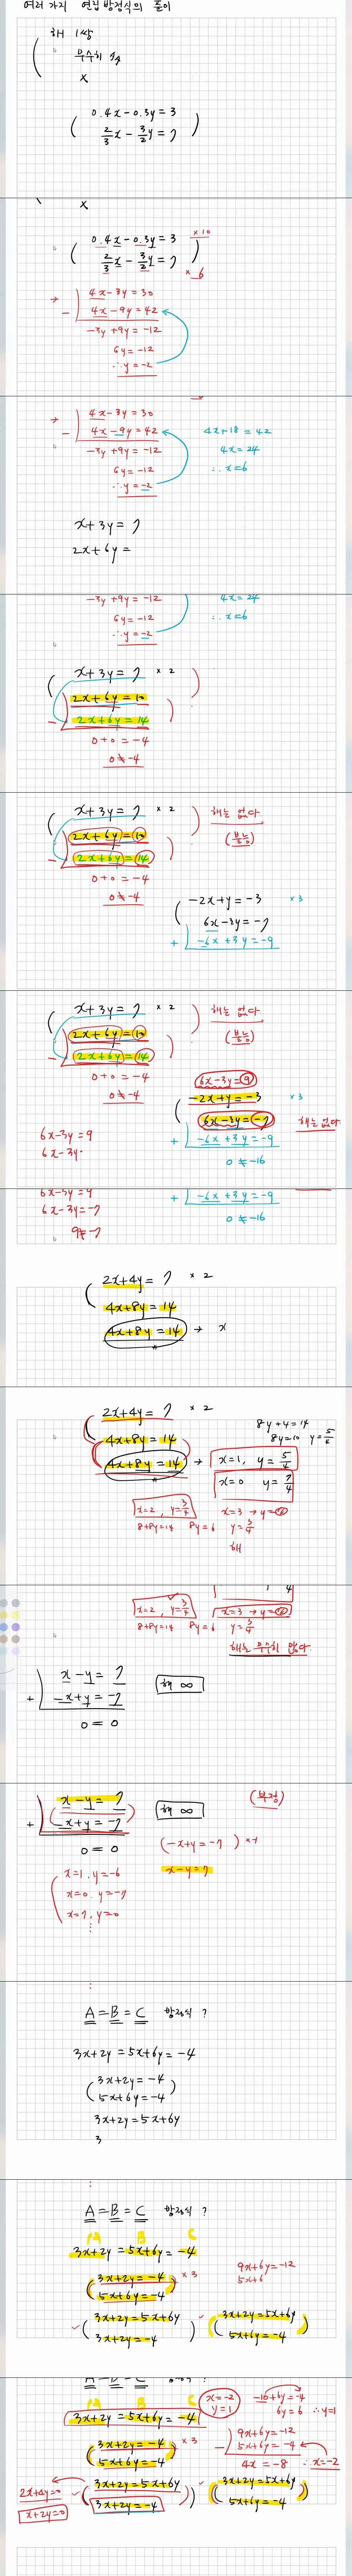 여러 가지 연립방정식의 풀이
해 1쌍
무수히 多
x
0.4x-0.3y=3
2/3x-3/2y=7
x
0.4x-0.3y=3 ×10
2/3x-3/2y=7 ×6
→ 4x-3y=30
- 4x-9y=42
-3y+9y=-12
6y=-12
∴y=-2
→ 4x-3y=30
- 4x-9y=42 4x+18=42
-3y+9y=-12 4x=24
6y=-12 ∴x=6
∴y=-2
x+3y=7
2x+6y=
-3y+9y=-12 4x=24
6y=-12 ∴x=6
∴y=-2
x+3y=7 ×2
2x+6y=10
- 2x+6y=14
0+0=-4
0≠-4
x+3y=7 ×2 해는 없다
2x+6y=10 (불능)
- 2x+6y=14
0+0=-4
0≠-4
-2x+y=-3 ×3
6x-3y=-7
+ -6x+3y=-9
x+3y=7 ×2 해는 없다
2x+6y=10 (불능)
- 2x+6y=14
0+0=-4 6x-3y=9
0≠-4 -2x+y=-3 ×3
6x-3y=-7 해는 없다
6x-3y=9 + -6x+3y=-9
6x-3y= 0≠-16
6x-3y=9 + -6x+3y=-9
6x-3y=-7 0≠-16
9≠-7
2x+4y=7 ×2
4x+8y=14
4x+8y=14 → x
2x+4y=7 ×2
8y+4=14
4x+8y=14 8y=10 y=5/4
4x+8y=14 → x=1, y=5/4
x=0 y=7/4
x=2, y=3/4 x=3→y=
8+8y=14 8y=6 y=3/4
해
x=2, y=3/4 x=3→y=
8+8y=14 8y=6 y=3/4
해는 무수히 많다.
x-y=7 해 ∞
+ -x+y=-7
0=0
x-y=7 해 ∞ (부정)
+ -x+y=-7
0=0 (-x+y=-7) ×-1
x=1, y=-6 x-y=7
x=0 y=-7
x=7, y=0
⋮
:
A=B=C 방정식?
3x+2y=5x+6y=-4
3x+2y=-4
5x+6y=-4
3x+2y=5x+6y
3
:
A=B=C 방정식?
A B C
3x+2y=5x+6y=-4 9x+6y=-12
3x+2y=-4 ×3 5x+6
5x+6y=-4
3x+2y=5x+6y 3x+2y=5x+6y
3x+2y=-4 5x+6y=-4
A=B=C
A B C x=-2 y=1 -10+6y=-4
3x+2y=5x+6y=-4 6y=6 ∴y=1
3x+2y=-4 ×3 9x+6y=-12
5x+6y=-4 - 5x+6y=-4
4x=-8 ∴x=-2
2x+4y=0 3x+2y=5x+6y 3x+2y=5x+6y
x+2y=0 3x+2y=-4 5x+6y=-4